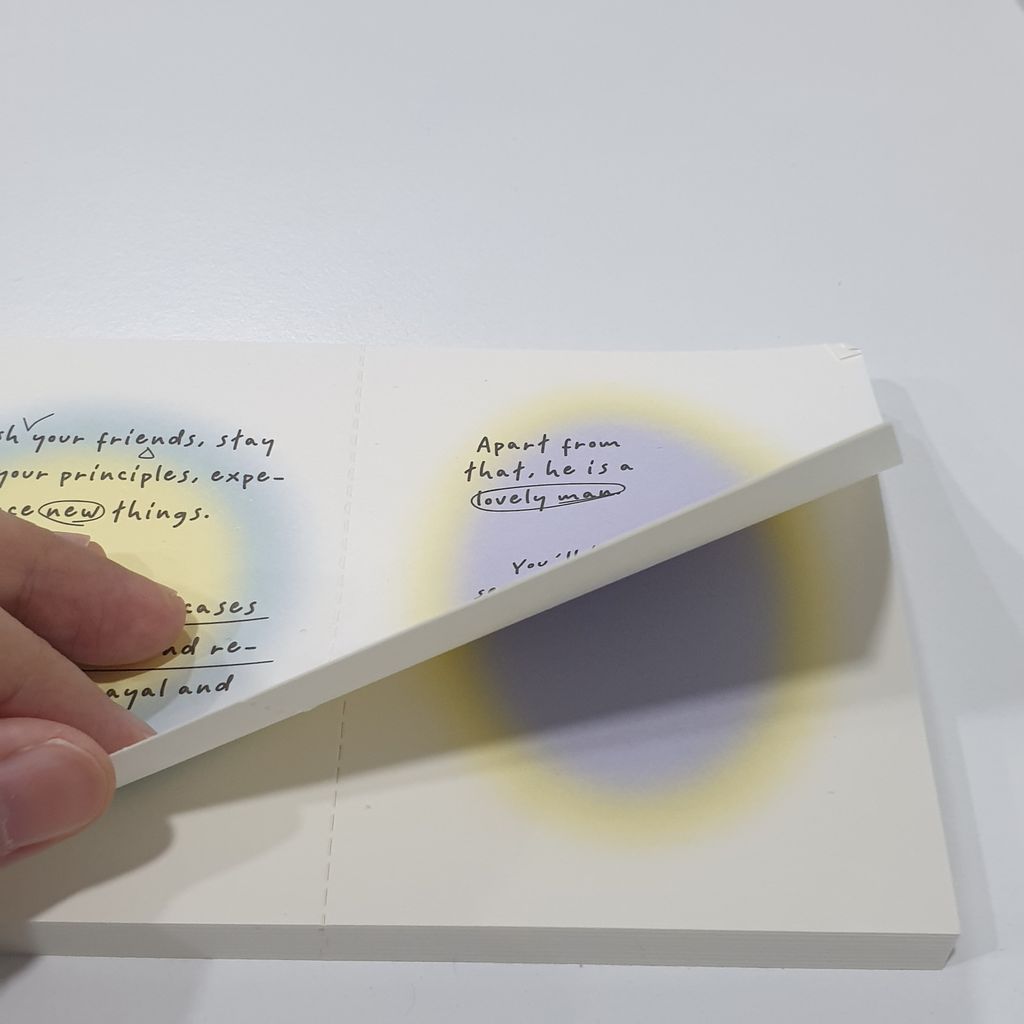 your friends, stay
your principles, expe-
new things.
cases
re-
and
Apart from
that, he is a
lovely man.